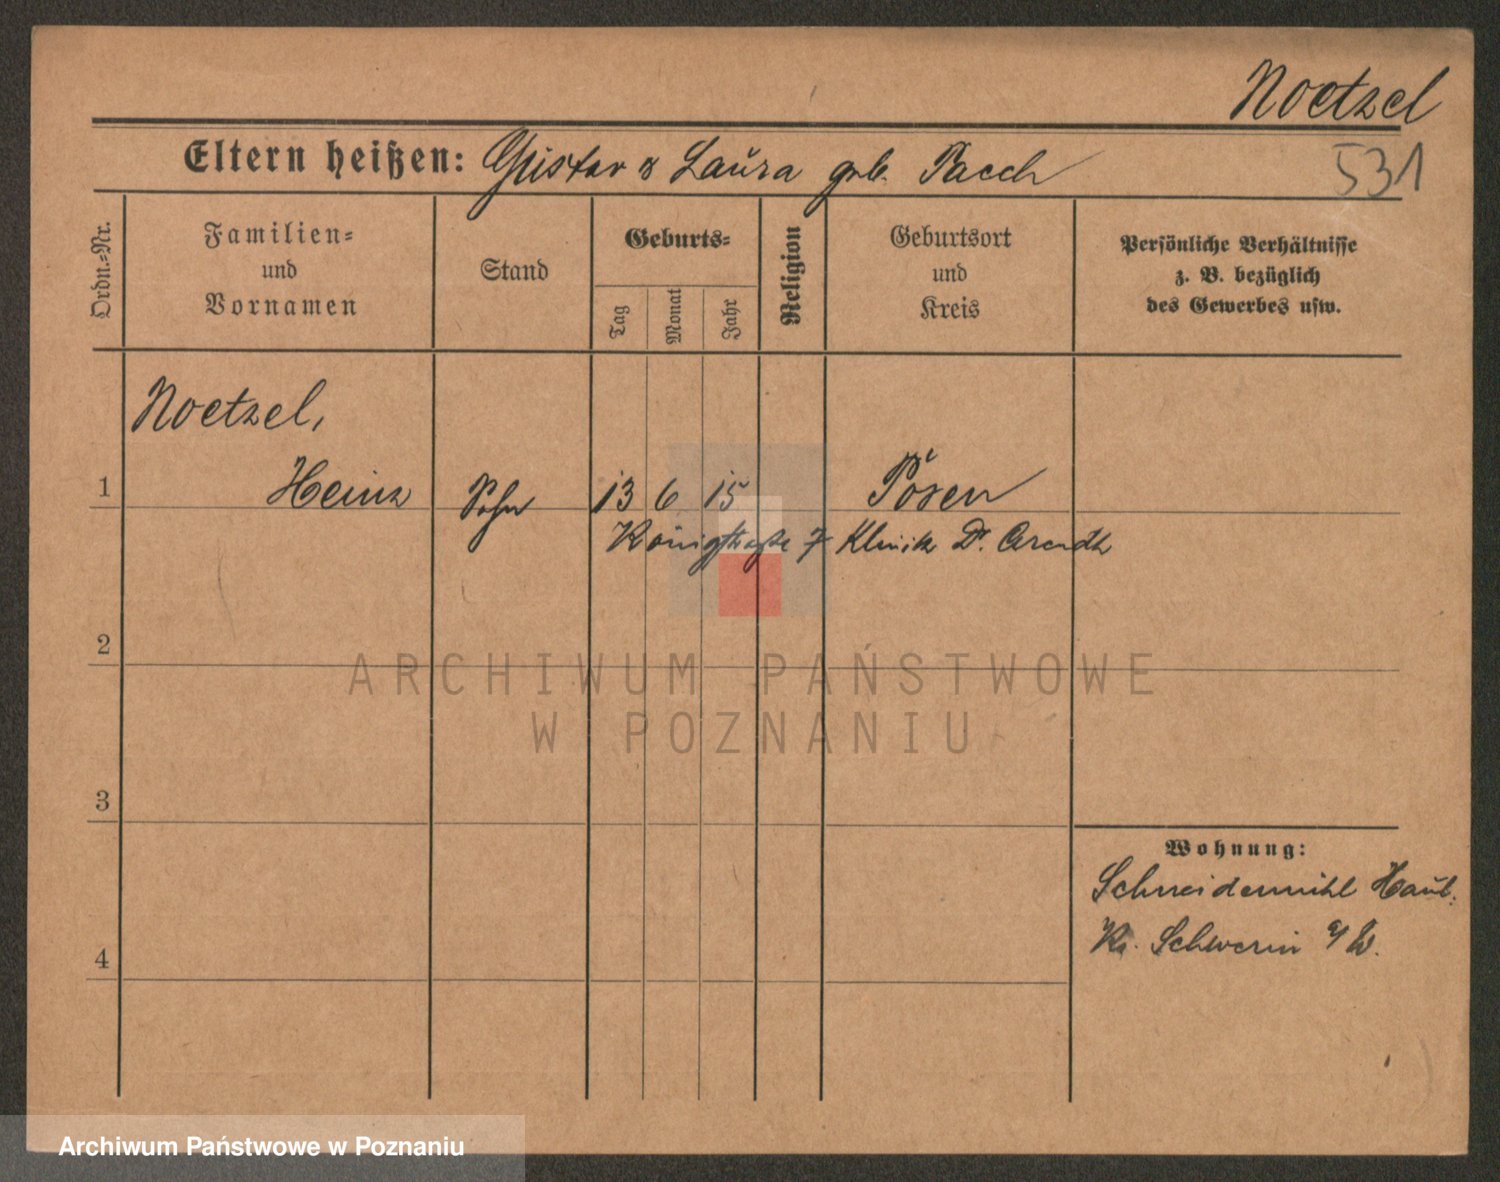 Noetzel
Eltern heißen: Gustav & Laura geb. Paech
531
Ordn.-Nr.
Familien-
und
Vornamen
Stand
Geburts-
Tag
Monat
Jahr
Religion
Geburtsort
und
Kreis
Persönliche Verhältnisse
z. B. bezüglich
des Gewerbes usw.
Noetzel,
1 Heinz Sohn 13 6 15 Posen
Königstraße 7 Klinik Dr. Arendt
2
ARCHIWUM PAŃSTWOWE
W POZNANIU
3
Wohnung:
Schneidemühl Haul.
Kr. Schwerin a/W.
4
Archiwum Państwowe w Poznaniu